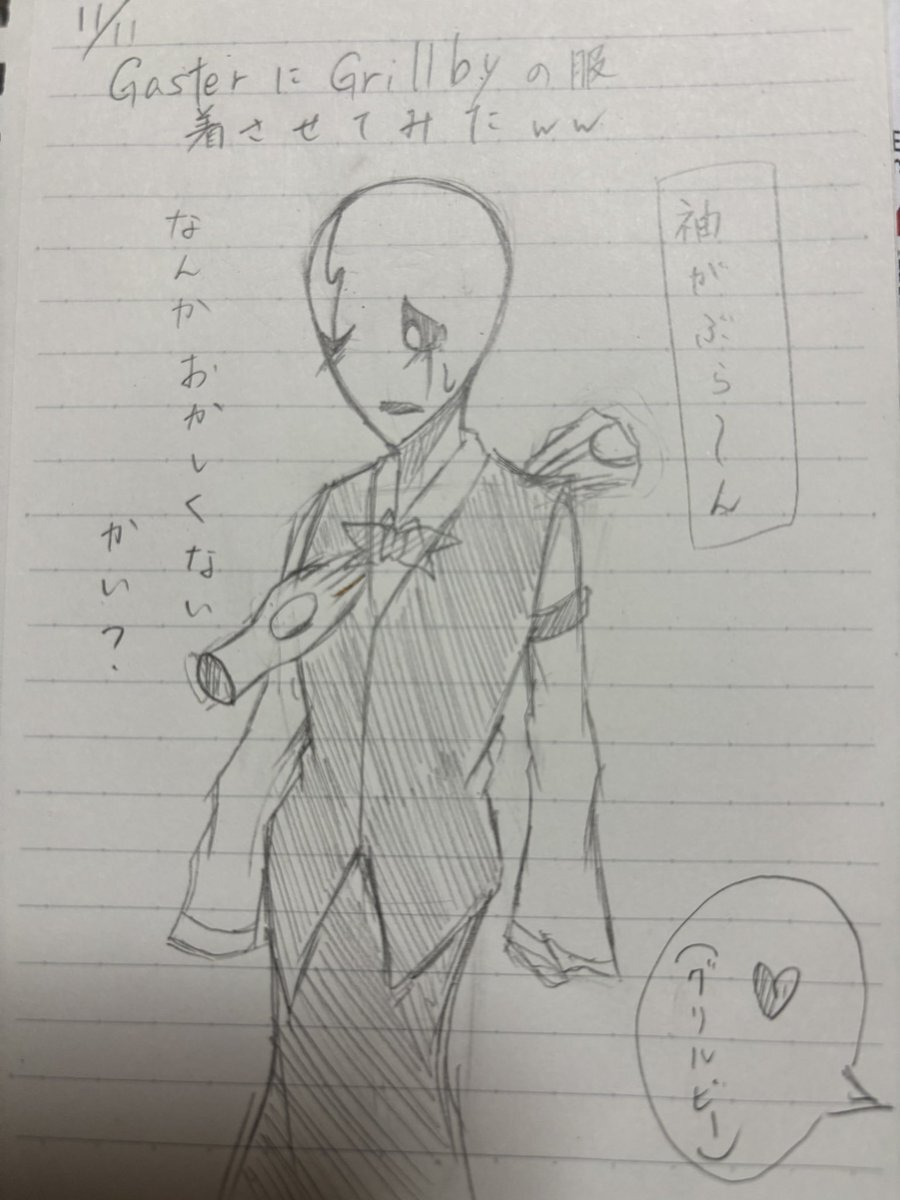 11/11
Gaster に Grillby の服
着させてみたww
袖がぶら～ん
なんかおかしくない
かい?
♥
(グリルビー)